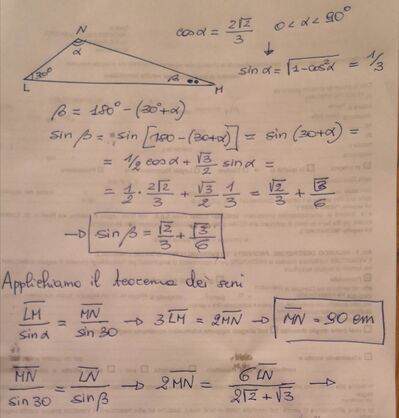 N
α
30°
β
L
M
cos α = 2√2/3   0 < α < 90°
↓
sin α = √(1-cos²α) = 1/3
β = 180° - (30° + α)
sin β = sin [180 - (30+α)] = sin (30+α) =
= 1/2 cos α + √3/2 sin α =
= 1/2 · 2√2/3 + √3/2 1/3 = √2/3 + √3/6
→ sin β = √2/3 + √3/6
Applichiamo il teorema dei seni
LM/sin α = MN/sin 30 → 3 LM = 2MN → MN = 90 cm
MN/sin 30 = LN/sin β → 2MN = 6 LN/(2√2 + √3) →